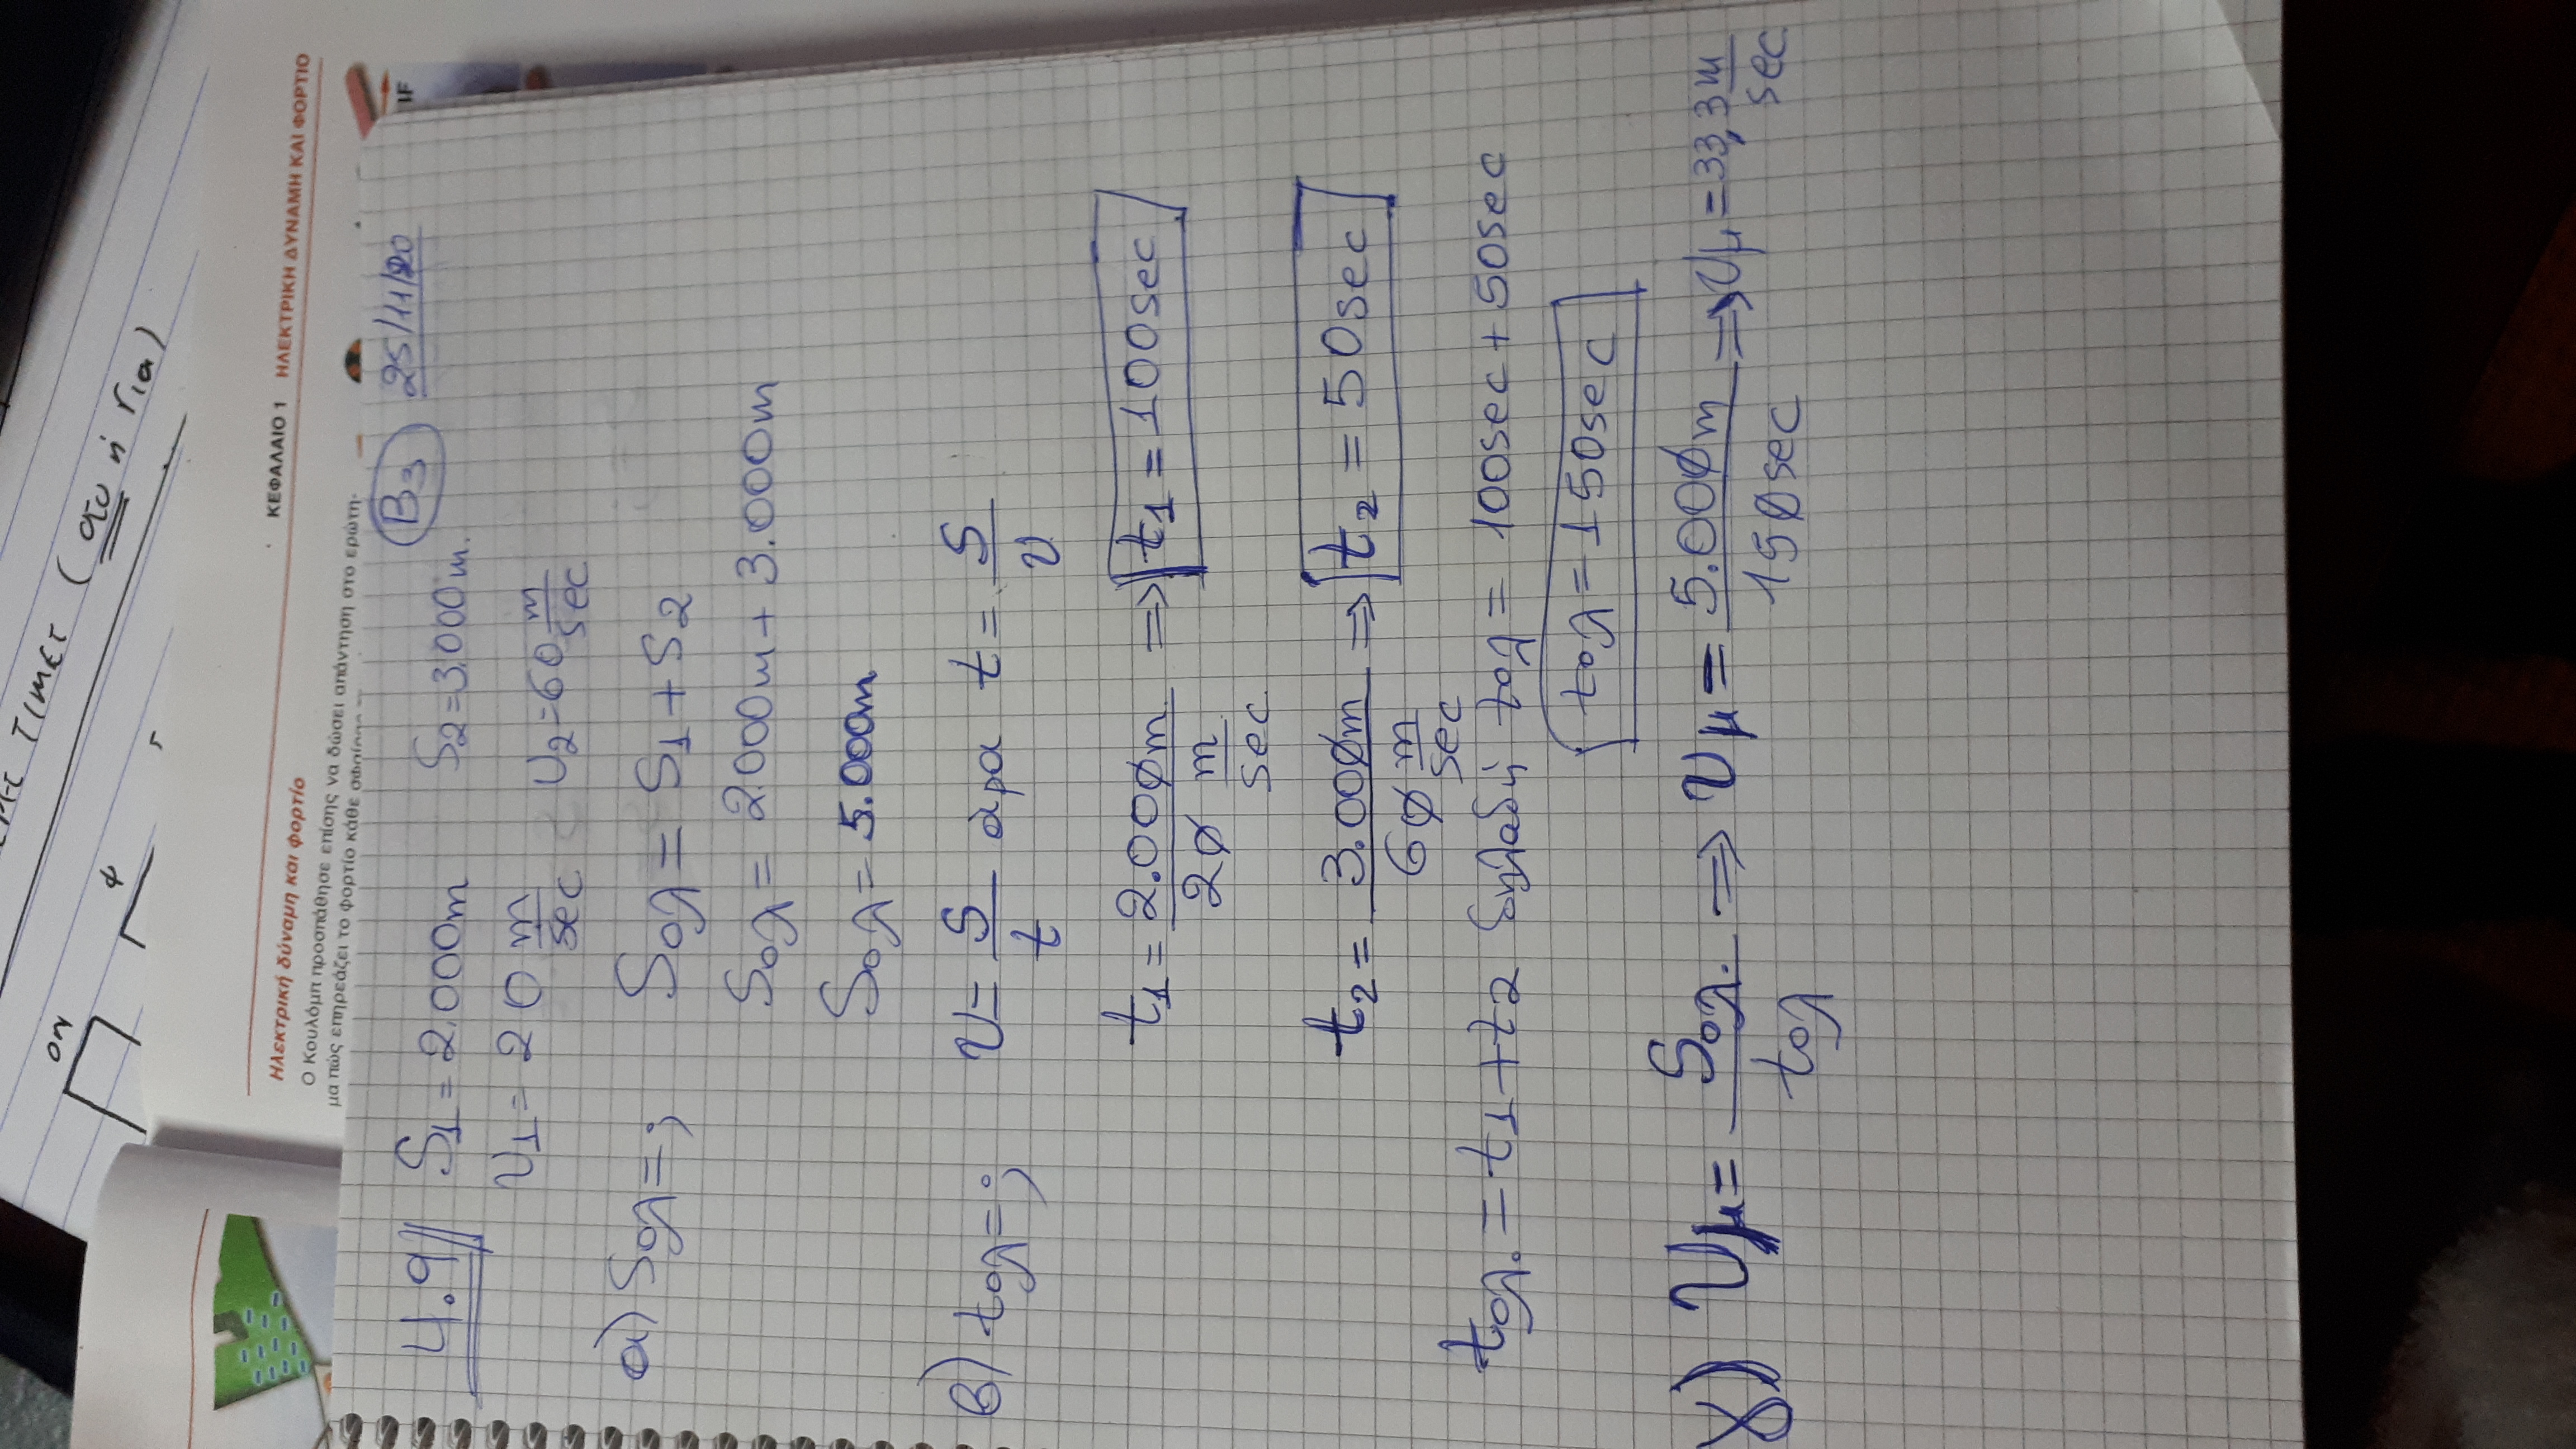 τιμετ (συ ή για)
on
ΚΕΦΑΛΑΙΟ 1 ΗΛΕΚΤΡΙΚΗ ΔΥΝΑΜΗ ΚΑΙ ΦΟΡΤΙΟ
Ηλεκτρική δύναμη και φορτίο
Ο Κουλόμπ προσπάθησε επίσης να δώσει απάντηση στο ερώτη-
μα πώς επηρεάζει το φορτίο κάθε
4.9 S1 = 2.000m S2=3.000m. B3 25/11/20
υ1 = 20 m/sec υ2=60 m/sec
α) Sολ=; Sολ = S1 + S2
Sολ = 2.000m + 3.000m
Sολ = 5.000m
β) tολ=; υ = S/t άρα t = S/υ
t1 = 2.000m / 20 m/sec => t1 = 100sec
t2 = 3.000m / 60 m/sec => t2 = 50sec
tολ. = t1 + t2 δηλαδή tολ = 100sec + 50sec
tολ = 150sec
γ) υμ = Sολ. / tολ => υμ = 5.000m / 150sec => υμ = 33,3 m/sec